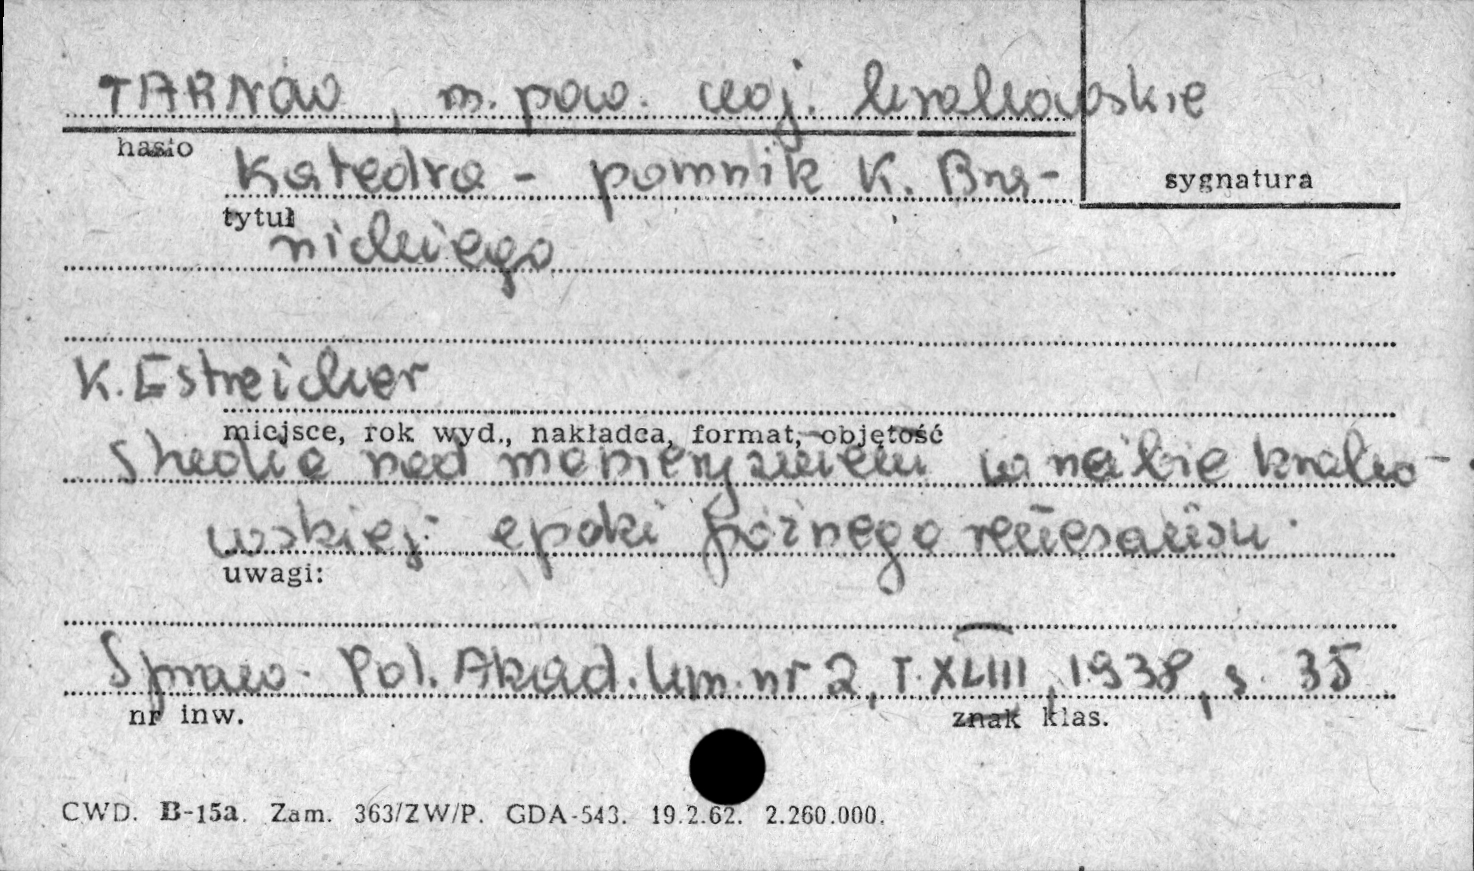 TARNÓW, m. pow. woj. krakowskie
hasło
Katedra - pomnik K. Bra-
sygnatura
tytuł
nickiego
K. Estreicher
miejsce, rok wyd., nakładca, format, objętość
Studia nad manieryzmem w rzeźbie krako-
wskiej epoki późnego renesansu.
uwagi:
Spraw. Pol. Akad. Um. nr 2, T. XLIII, 1938, s. 35
nr inw.
znak klas.
CWD. B-15a. Zam. 363/ZW/P. GDA-543. 19.2.62. 2.260.000.